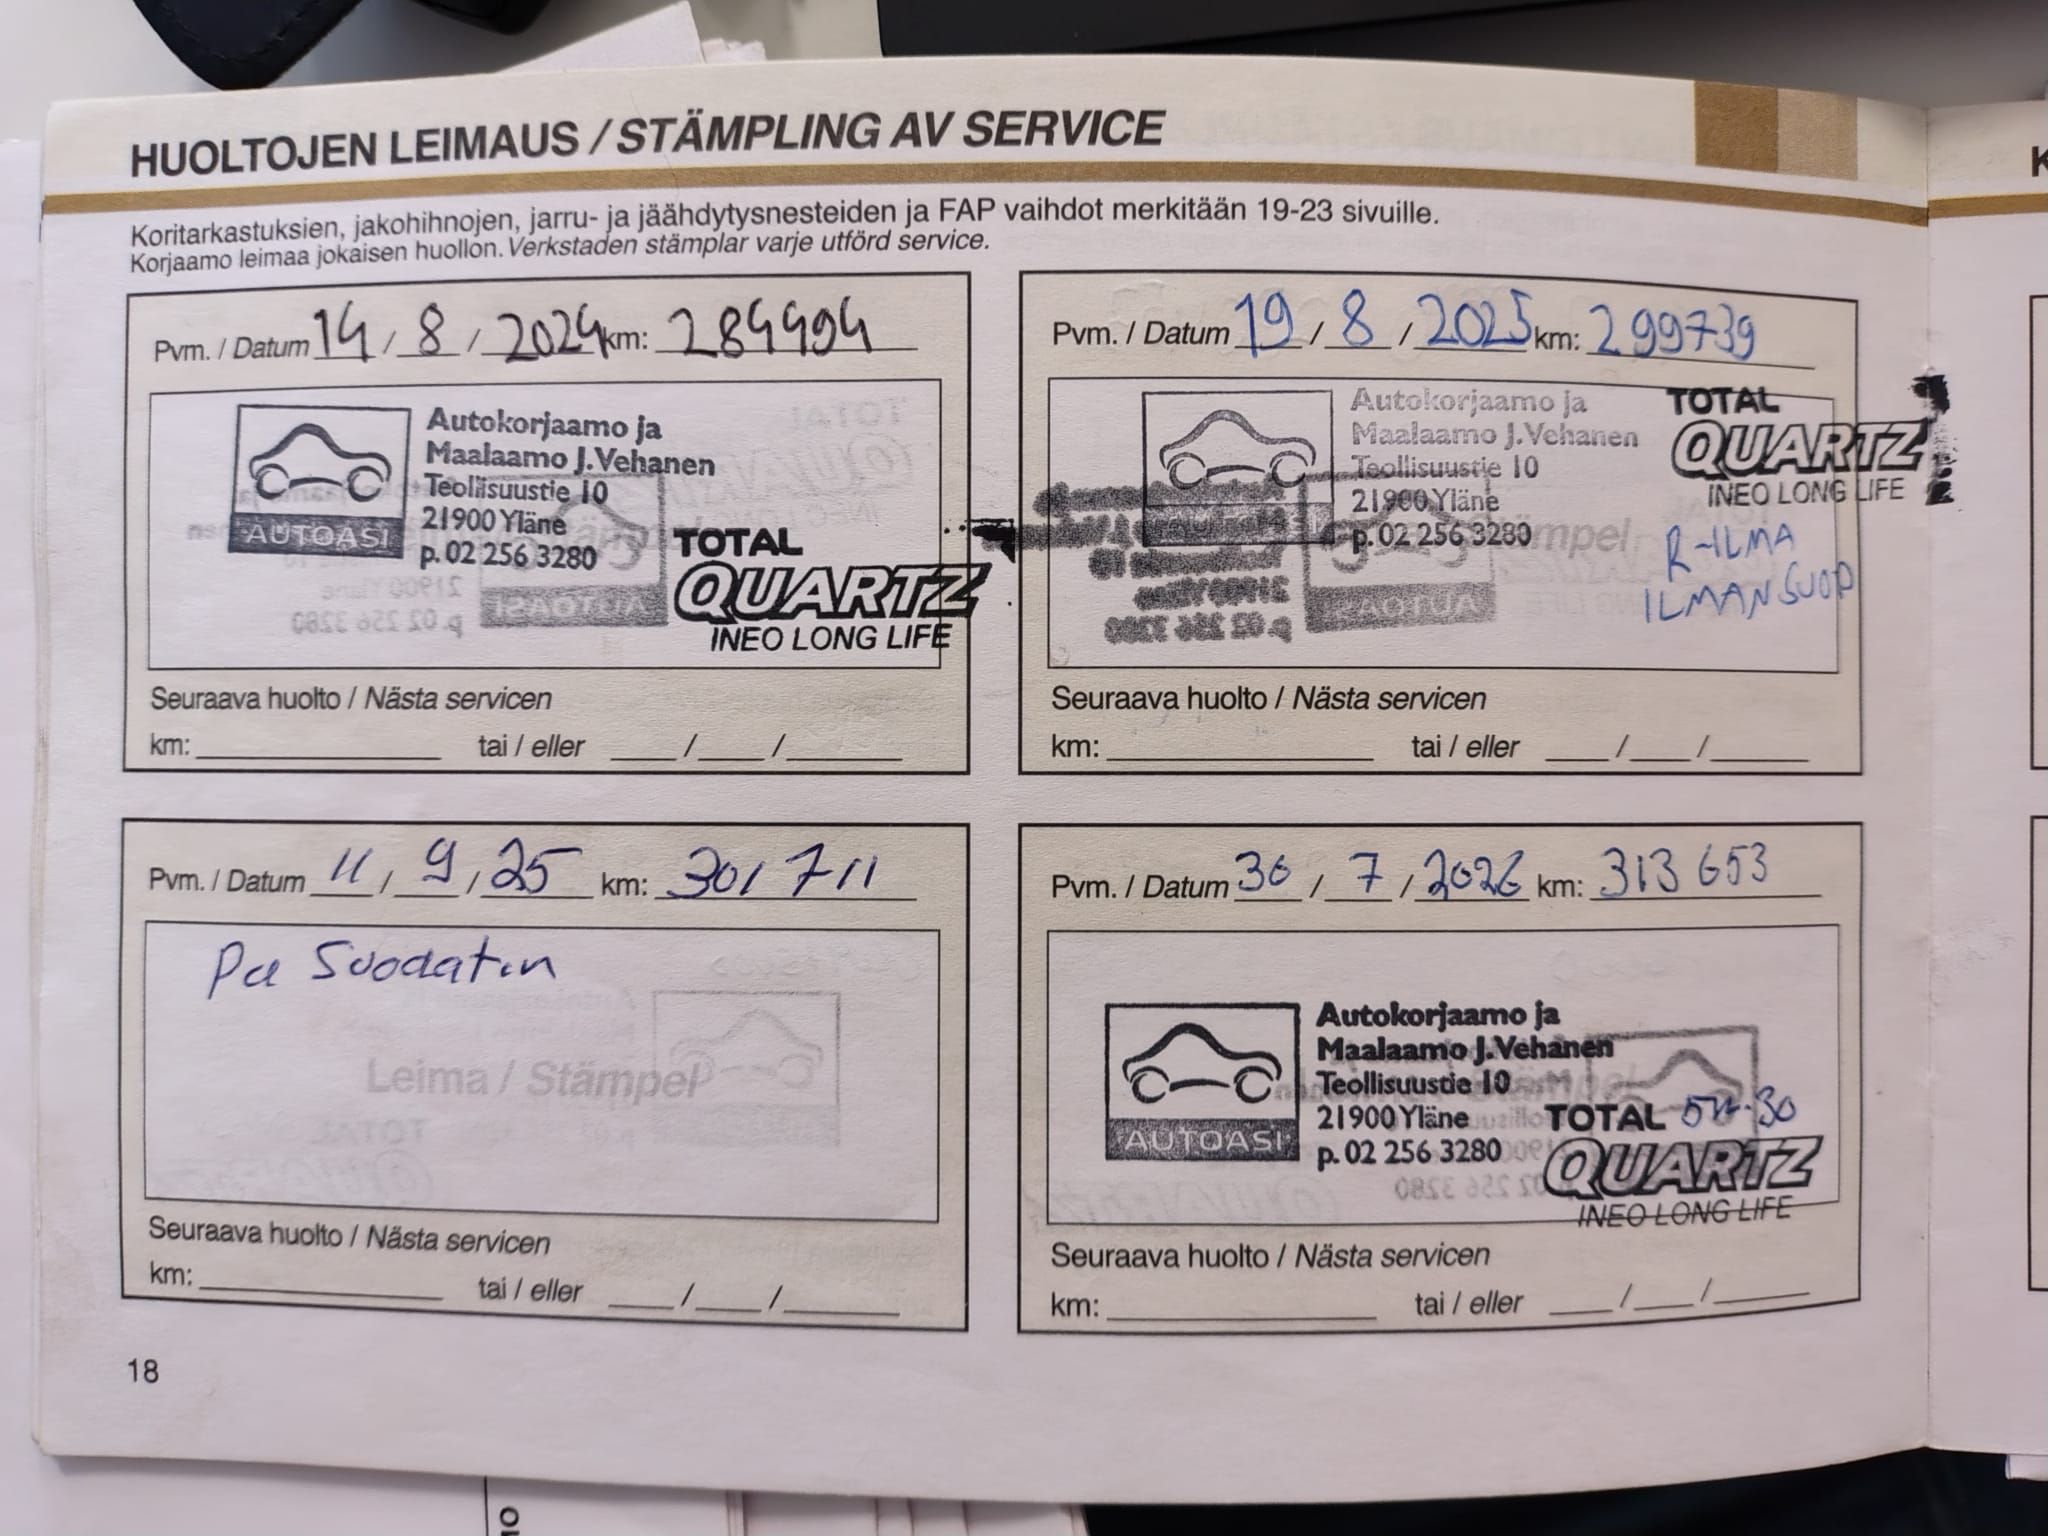 HUOLTOJEN LEIMAUS / STÄMPLING AV SERVICE
Koritarkastuksien, jakohihnojen, jarru- ja jäähdytysnesteiden ja FAP vaihdot merkitään 19-23 sivuille.
Korjaamo leimaa jokaisen huollon. Verkstaden stämplar varje utförd service.
Pvm. / Datum 14 / 8 / 2024 km: 284494
AUTOASI
Autokorjaamo ja
Maalaamo J.Vehanen
Teollisuustie 10
21900 Yläne
p. 02 256 3280
TOTAL
QUARTZ
INEO LONG LIFE
Seuraava huolto / Nästa servicen
km: tai / eller / /
Pvm. / Datum 19 / 8 / 2025 km: 299739
Autokorjaamo ja
Maalaamo J.Vehanen
Teollisuustie 10
21900 Yläne
p. 02 256 3280
TOTAL
QUARTZ
INEO LONG LIFE
R-ILMA
ILMANSUOD
Seuraava huolto / Nästa servicen
km: tai / eller / /
Pvm. / Datum 11 / 9 / 25 km: 301711
Pa Suodatin
Leima / Stämpel
Seuraava huolto / Nästa servicen
km: tai / eller / /
Pvm. / Datum 30 / 7 / 2026 km: 313 653
AUTOASI
Autokorjaamo ja
Maalaamo J.Vehanen
Teollisuustie 10
21900 Yläne
p. 02 256 3280
TOTAL 5W-30
QUARTZ
INEO LONG LIFE
Seuraava huolto / Nästa servicen
km: tai / eller / /
18